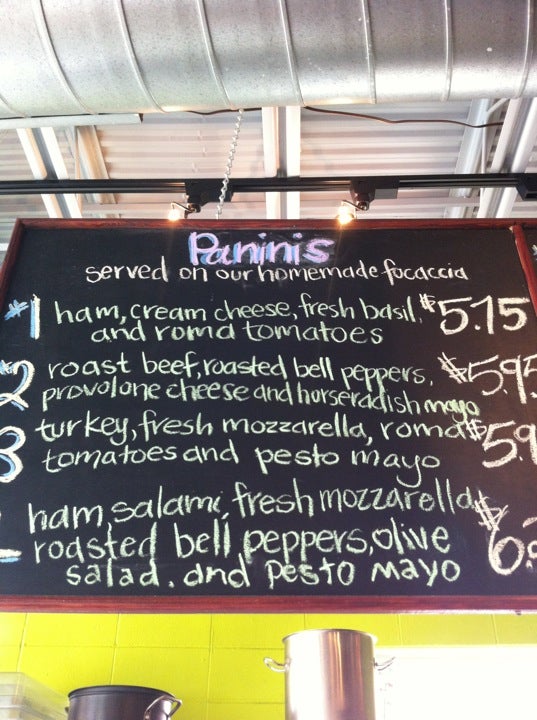 Paninis
served on our homemade focaccia
#1 ham, cream cheese, fresh basil, $5.15
and roma tomatoes
#2 roast beef, roasted bell peppers, $5.95
provolone cheese and horseradish mayo
3 turkey, fresh mozzarella, roma $5.9
tomatoes and pesto mayo
ham, salami, fresh mozzarella, $6.
roasted bell peppers, olive
salad. and pesto mayo